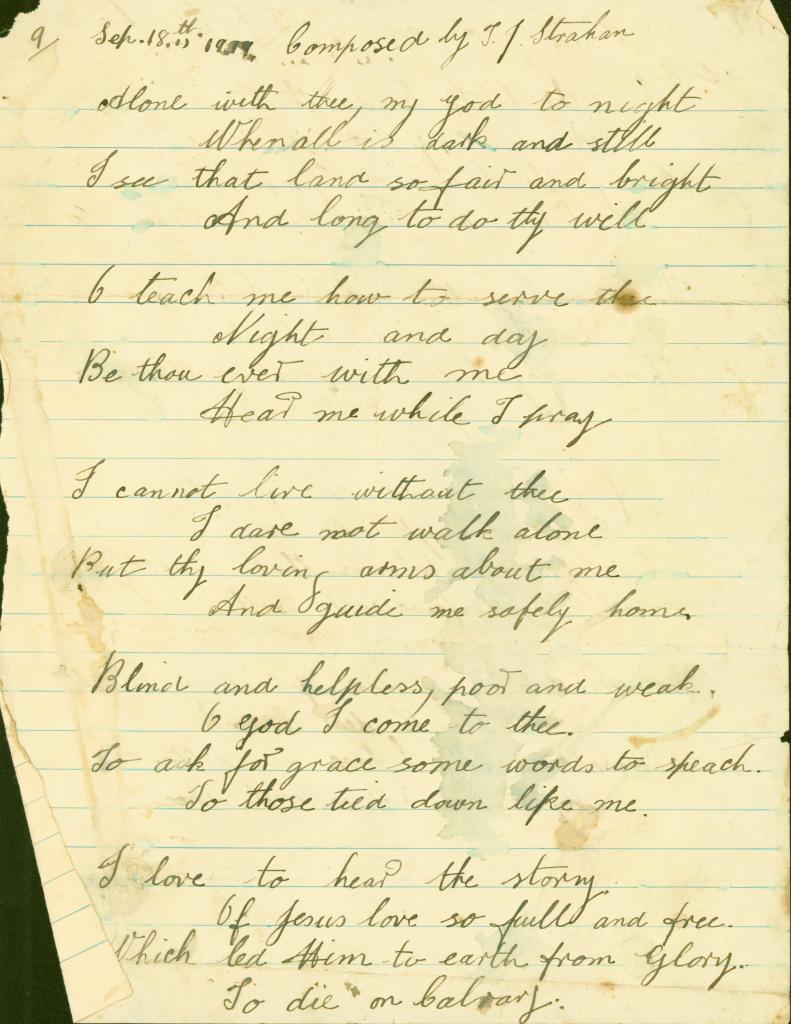 9/ Sep. 18.th Composed by T. J. Strahan
Alone with thee, my god to night
When all is dark and still
I see that land so fair and bright
And long to do thy will
O teach me how to serve thee
Night and day
Be thou ever with me
Hear me while I pray
I cannot live without thee
I dare not walk alone
But thy loving arms about me
And guide me safely home.
Blind and helpless, poor and weak.
O god I come to thee.
To ask for grace some words to speach.
To those tied down like me.
I love to hear the story.
Of Jesus love so full and free.
Which led Him to earth from Glory.
To die on Calvary.